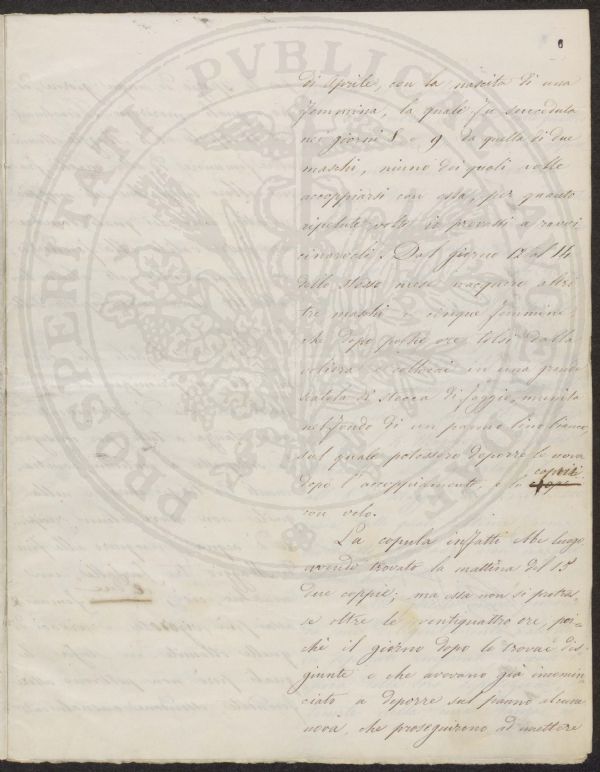 6
di Aprile, con la nascita di una
femmina, la quale fu succeduta
nei giorni 8 e 9 da quella di due
maschi, niuno dei quali volle
accoppiarsi con essa, per quanto
ripetute volte io provassi a ravvi
cinarveli. Dal giorno 12 al 14
dello stesso mese nacquero altri
tre maschi e cinque femmine
che dopo poche ore tolsi dalla
e collocai in una grande
scatola di stecca di faggio, munita
nel fondo di un panno lino bianco,
sul quale potessero deporre le uova
dopo l'accoppiamento, e la coprii
con velo.
La copula infatti ebbe luogo,
avendo trovato la mattina del 15
due coppie; ma essa non si protras
se oltre le ventiquattro ore, poi=
chè il giorno dopo le trovai dis-
giunte e che avevano già incomin
ciato a deporre sul panno alcune
uova, che proseguirono ad emettere
PROSPERITATI PVBLICAE